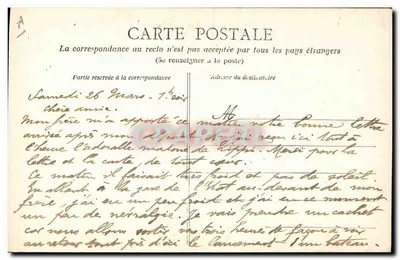 CARTE POSTALE
La correspondance au recto n'est pas acceptée par tous les pays étrangers
(Se renseigner à la poste)
Partie réservée à la correspondance
Adresse du destinataire
Samedi 26 Mars.
chère amie.
M
Mon frère m'a apporté ce matin votre bonne lettre
arrivée après mon départ et j'ai reçu ici tout à
l'heure l'adorable madone de Lippi. Merci pour la
lettre et la carte, de tout cœur.
Ce matin il faisait très froid et pas de soleil.
En allant à la gare de au devant de mon
frère j'ai eu un peu froid et j'ai en ce moment
un peu de névralgie. Je vais prendre un cachet
car nous allons sortir vers trois heures de façon à voir
au retour tout près d'ici le lancement d'un bateau.